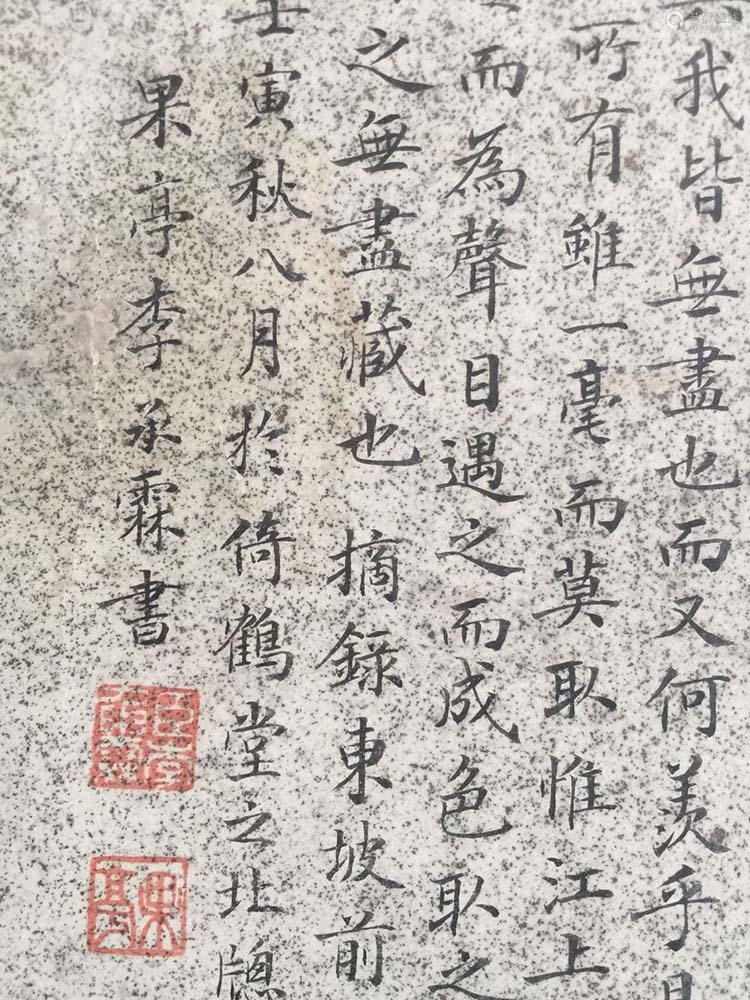 我皆無盡也而又何羨乎且
所有雖一毫而莫取惟江上
而為聲目遇之而成色取之
之無盡藏也 摘錄東坡前
壬寅秋八月於倚鶴堂之北牕
果亭李承霖書
果亭